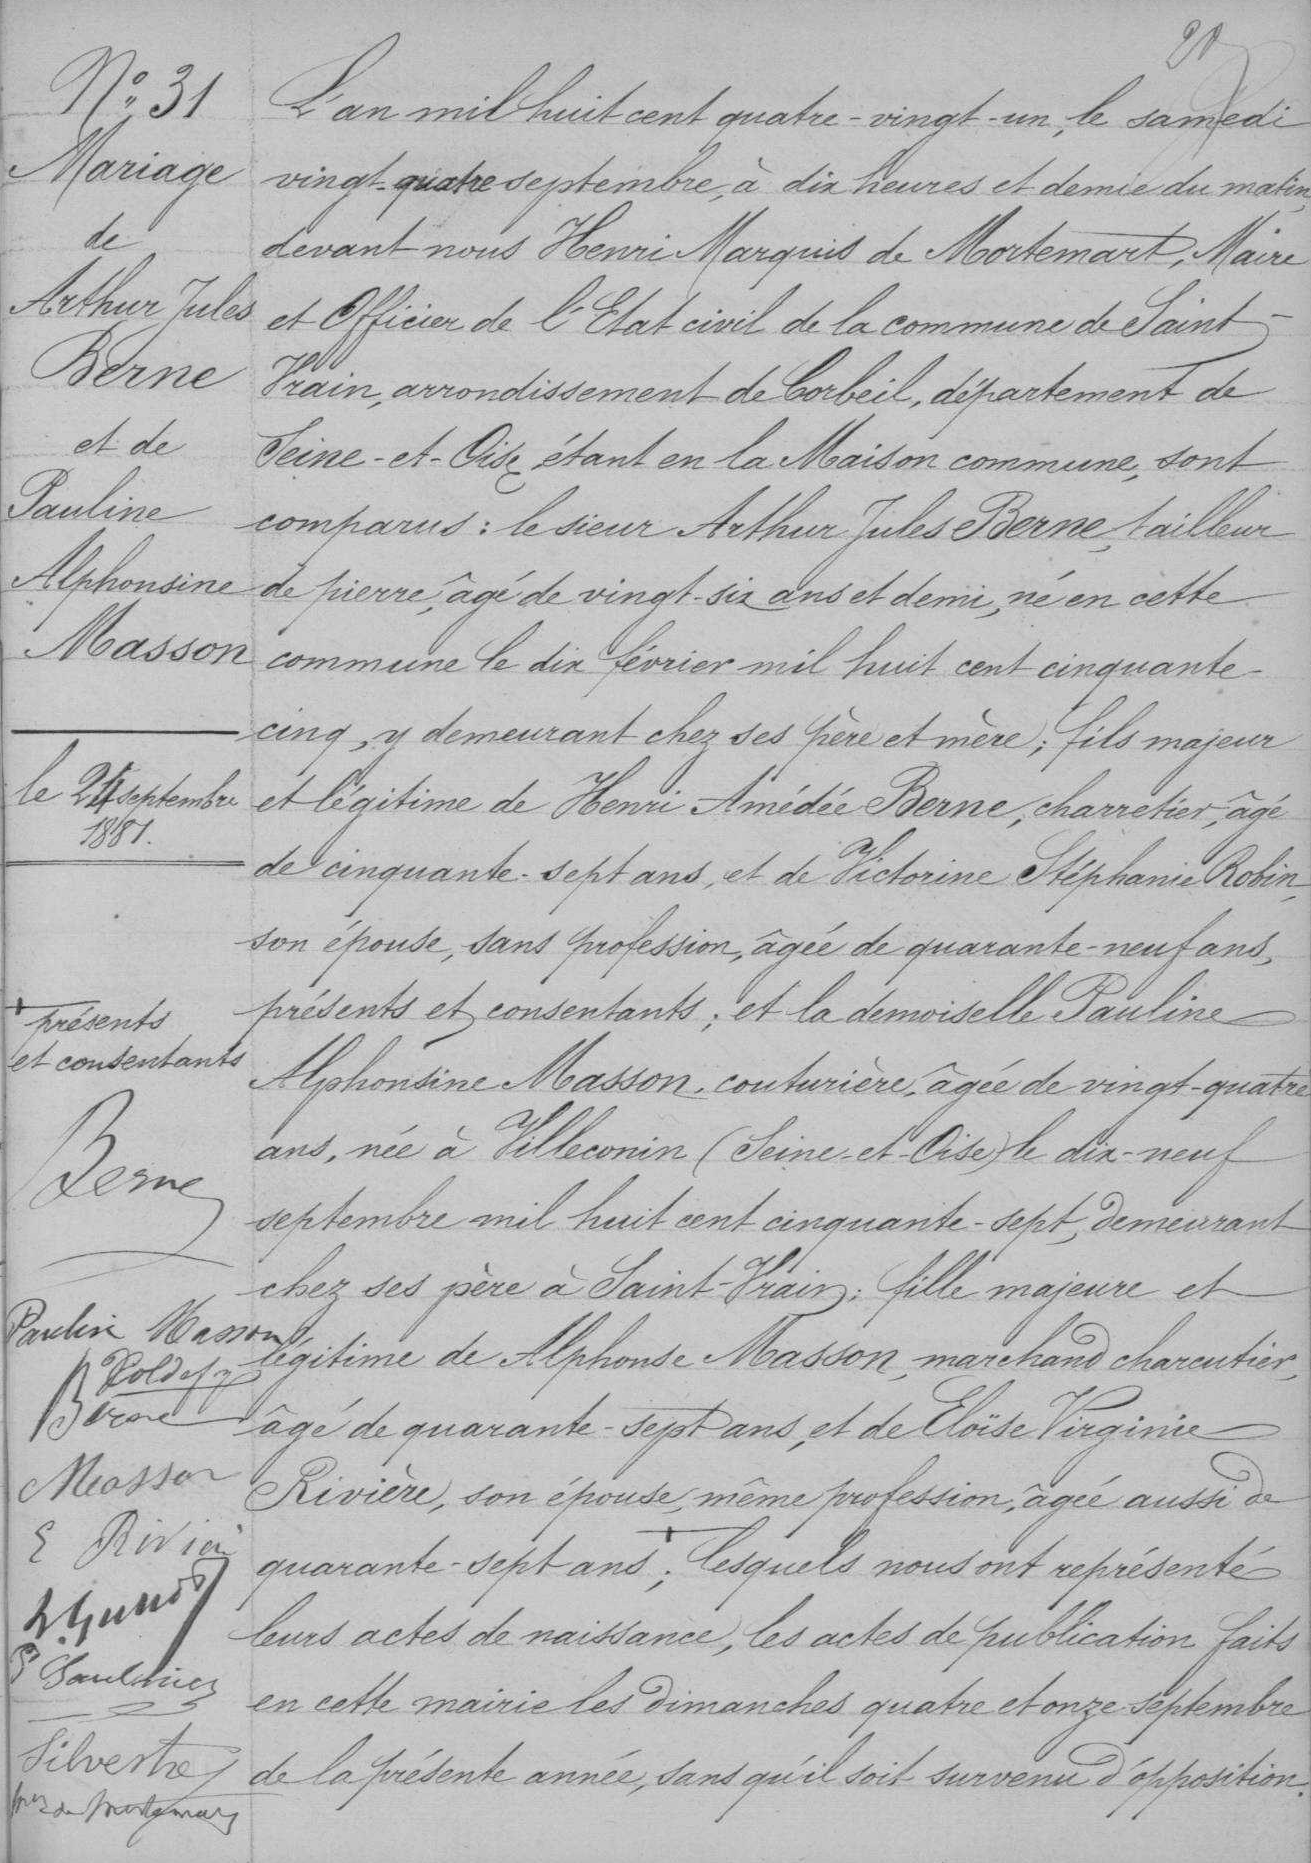 20
N° 31
Mariage
de
Arthur Jules
Berne
et de
Pauline
Alphonsine
Masson
le 24 septembre
1881.
présents
et consentants
Berne
Pauline Masson
Berne
Masson
E Rivièr
Silvestre
L'an mil huit cent quatre-vingt-un, le samedi
vingt-quatre septembre, à dix heures et demie du matin,
devant nous Henri Marquis de Mortemart, Maire
et Officier de l'Etat civil de la commune de Saint-
Vrain, arrondissement de Corbeil, département de
Seine-et-Oise, étant en la Maison commune, sont
comparus : le sieur Arthur Jules Berne, tailleur
de pierre, âgé de vingt-six ans et demi, né en cette
commune le dix février mil huit cent cinquante-
cinq, y demeurant chez ses père et mère ; fils majeur
et légitime de Henri Amédée Berne, charretier, âgé
de cinquante-sept ans, et de Victorine Stéphanie Robin,
son épouse, sans profession, âgée de quarante-neuf ans,
présents et consentants ; et la demoiselle Pauline
Alphonsine Masson, couturière, âgée de vingt-quatre
ans, née à Villeconin (Seine-et-Oise) le dix-neuf
septembre mil huit cent cinquante-sept, demeurant
chez ses père à Saint-Vrain ; fille majeure et
légitime de Alphonse Masson, marchand charcutier,
âgé de quarante-sept ans, et de Eloïse Virginie
Rivière, son épouse, même profession, âgée aussi de
quarante-sept ans ; lesquels nous ont représenté
leurs actes de naissance, les actes de publication faits
en cette mairie les dimanches quatre et onze septembre
de la présente année, sans qu'il soit survenu d'opposition.